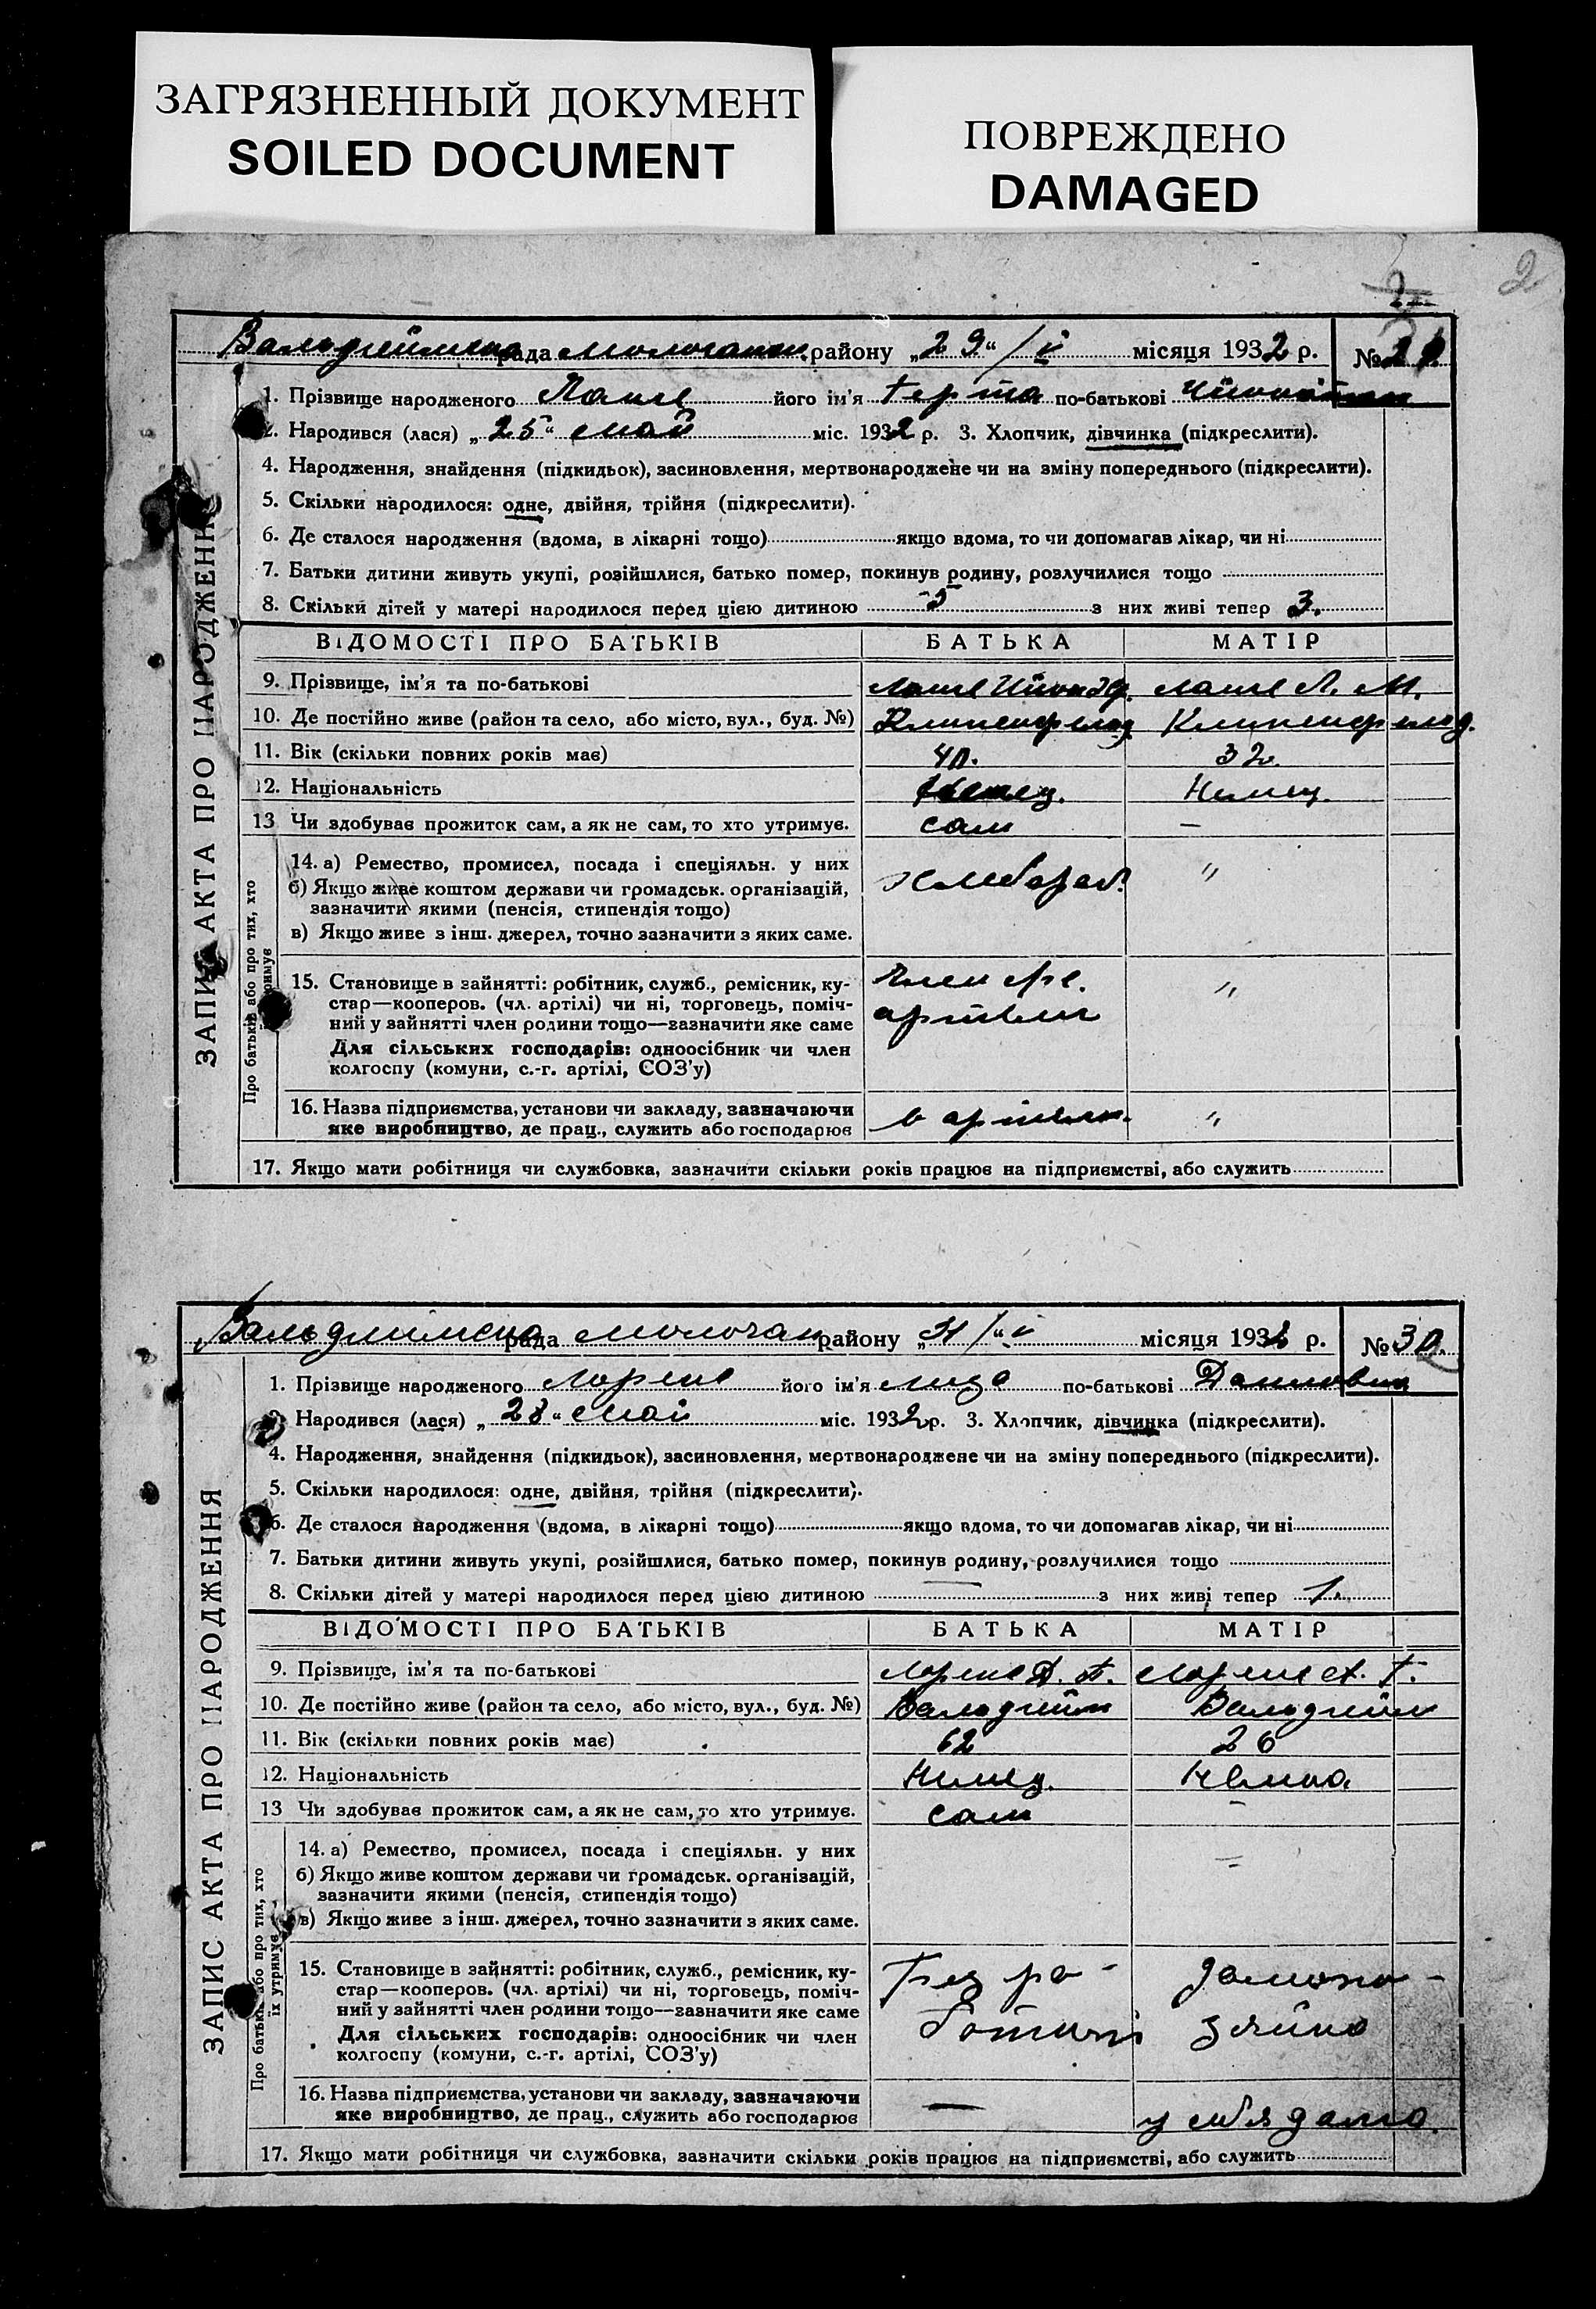 ЗАГРЯЗНЕННЫЙ ДОКУМЕНТ
SOILED DOCUMENT
ПОВРЕЖДЕНО
DAMAGED
2
рада район у „29“ / V місяця 1932 р. №
1. Прізвище народженого його ім'я Герта по-батькові
Народився (лася) „25“ май міс. 1932 р. 3. Хлопчик, дівчинка (підкреслити).
4. Народження, знайдення (підкидьок), засиновлення, мертвонароджене чи на зміну попереднього (підкреслити).
5. Скільки народилося: одне, двійня, трійня (підкреслити).
6. Де сталося народження (вдома, в лікарні тощо) якщо вдома, то чи допомагав лікар, чи ні
7. Батьки дитини живуть укупі, розійшлися, батько помер, покинув родину, розлучилися тощо
8. Скільки дітей у матері народилося перед цією дитиною 5 з них живі тепер 3.
ЗАПИС АКТА ПРО НАРОДЖЕННЯ
ВІДОМОСТІ ПРО БАТЬКІВ БАТЬКА МАТІР
9. Прізвище, ім'я та по-батькові
10. Де постійно живе (район та село, або місто, вул., буд. №)
11. Вік (скільки повних років має) 40. 32.
12. Національність Немец. Немец.
13 Чи здобував прожиток сам, а як не сам, то хто утримує. сам –
Про батьків або про тих, хто
14. а) Ремество, промисел, посада і спеціяльн. у них
б) Якщо живе коштом держави чи громадськ. організацій,
зазначити якими (пенсія, стипендія тощо)
в) Якщо живе з інш. джерел, точно зазначити з яких саме.
хлебороб. "
15. Становище в зайнятті: робітник, служб., ремісник, ку-
стар—кооперов. (чл. артілі) чи ні, торговець, поміч-
ний у зайнятті член родини тощо—зазначити яке саме
Для сільських господарів: одноосібник чи член
колгоспу (комуни, с.-г. артілі, СОЗ'у)
член "
артели
16. Назва підприємства, установи чи закладу, зазначаючи
яке виробництво, де прац., служить або господарює
в артели. "
17. Якщо мати робітниця чи службовка, зазначити скільки років працює на підприємстві, або служить
рада Молочан району місяця 1932 р. № 30
1. Прізвище народженого Лоренс його ім'я Лиза по-батькові
Народився (лася) „28“ май міс. 1932 р. 3. Хлопчик, дівчинка (підкреслити).
4. Народження, знайдення (підкидьок), засиновлення, мертвонароджене чи на зміну попереднього (підкреслити).
5. Скільки народилося: одне, двійня, трійня (підкреслити).
6. Де сталося народження (вдома, в лікарні тощо) якщо вдома, то чи допомагав лікар, чи ні
7. Батьки дитини живуть укупі, розійшлися, батько помер, покинув родину, розлучилися тощо
8. Скільки дітей у матері народилося перед цією дитиною — з них живі тепер 1.
ЗАПИС АКТА ПРО НАРОДЖЕННЯ
ВІДОМОСТІ ПРО БАТЬКІВ БАТЬКА МАТІР
9. Прізвище, ім'я та по-батькові Лоренс Д. П. Лоренс А. Г.
10. Де постійно живе (район та село, або місто, вул., буд. №) Вальдгейм Вальдгейм
11. Вік (скільки повних років має) 62 26
12. Національність Немец. Немка
13 Чи здобував прожиток сам, а як не сам, то хто утримує. сам –
Про батьків або про тих, хто
їх утримує
14. а) Ремество, промисел, посада і спеціяльн. у них
б) Якщо живе коштом держави чи громадськ. організацій,
зазначити якими (пенсія, стипендія тощо)
в) Якщо живе з інш. джерел, точно зазначити з яких саме.
15. Становище в зайнятті: робітник, служб., ремісник, ку-
стар—кооперов. (чл. артілі) чи ні, торговець, поміч-
ний у зайнятті член родини тощо—зазначити яке саме
Для сільських господарів: одноосібник чи член
колгоспу (комуни, с.-г. артілі, СОЗ'у)
16. Назва підприємства, установи чи закладу, зазначаючи
яке виробництво, де прац., служить або господарює
— у себя дома.
17. Якщо мати робітниця чи службовка, зазначити скільки років працює на підприємстві, або служить